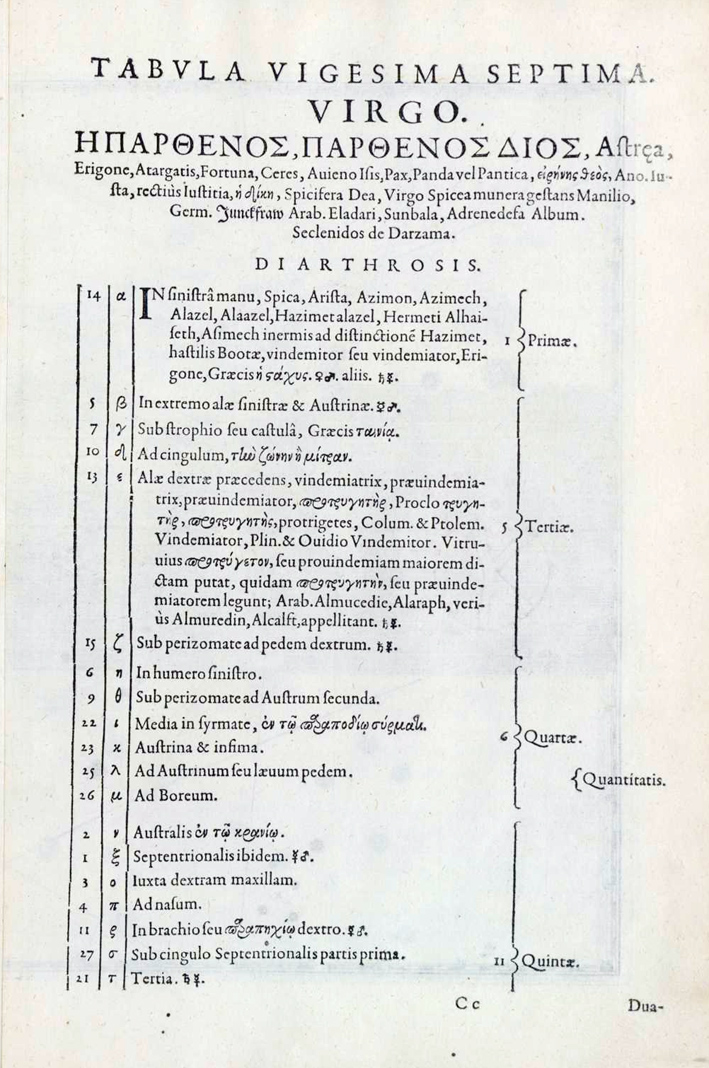 TABVLA VIGESIMA SEPTIMA.
VIRGO.
ΗΠΑΡΘΕΝΟΣ, ΠΑΡΘΕΝΟΣ ΔΙΟΣ, Aſtręa,
Erigone, Atargatis, Fortuna, Ceres, Auieno Iſis, Pax, Panda vel Pantica, εἰρήνης θεὸς, Ano. Iu-
ſta, rectiùs Iuſtitia, ἡ δίκη, Spicifera Dea, Virgo Spicea munera geſtans Manilio,
Germ. Junckfraw Arab. Eladari, Sunbala, Adrenedefa Album.
Seclenidos de Darzama.
DIARTHROSIS.
14 α IN ſiniſtrâ manu, Spica, Ariſta, Azimon, Azimech,
Alazel, Alaazel, Hazimet alazel, Hermeti Alhai-
ſeth, Aſimech inermis ad diſtinctionē Hazimet,
haſtilis Bootæ, vindemitor ſeu vindemiator, Eri-
gone, Græcis ἡ ϛάχυς. ♀♂. aliis. ♄☿.
1 Primæ.
5 β In extremo alæ ſiniſtræ & Auſtrinæ. ☿♂.
7 γ Sub ſtrophio ſeu caſtulâ, Græcis ταινία.
10 δ Ad cingulum, τὴν ζώνην ἢ μίτραν.
13 ε Alæ dextræ præcedens, vindemiatrix, præuindemia-
trix, præuindemiator, προτρυγητὴρ, Proclo τρυγη-
τὴρ, προτρυγητὴς, protrigetes, Colum. & Ptolem.
Vindemiator, Plin. & Ouidio Vindemitor. Vitru-
uius προτρύγετον, ſeu prouindemiam maiorem di-
ctam putat, quidam προτρυγητὴν, ſeu præuinde-
miatorem legunt; Arab. Almucedie, Alaraph, veri-
ùs Almuredin, Alcalſt, appellitant. ♄☿.
5 Tertiæ.
15 ζ Sub perizomate ad pedem dextrum. ♄☿.
6 η In humero ſiniſtro.
9 θ Sub perizomate ad Auſtrum ſecunda.
22 ι Media in ſyrmate, ἐν τῷ παραποδίῳ σύρματι.
23 κ Auſtrina & infima.
6 Quartæ.
25 λ Ad Auſtrinum ſeu læuum pedem.
{Quantitatis.
26 μ Ad Boreum.
2 ν Auſtralis ἐν τῷ κρανίῳ.
1 ξ Septentrionalis ibidem. ☿♂.
3 ο Iuxta dextram maxillam.
4 π Ad naſum.
11 ρ In brachio ſeu παραπηχίῳ dextro. ☿♂.
27 σ Sub cingulo Septentrionalis partis prima.
11 Quintæ.
21 τ Tertia. ♄☿.
Cc
Dua-